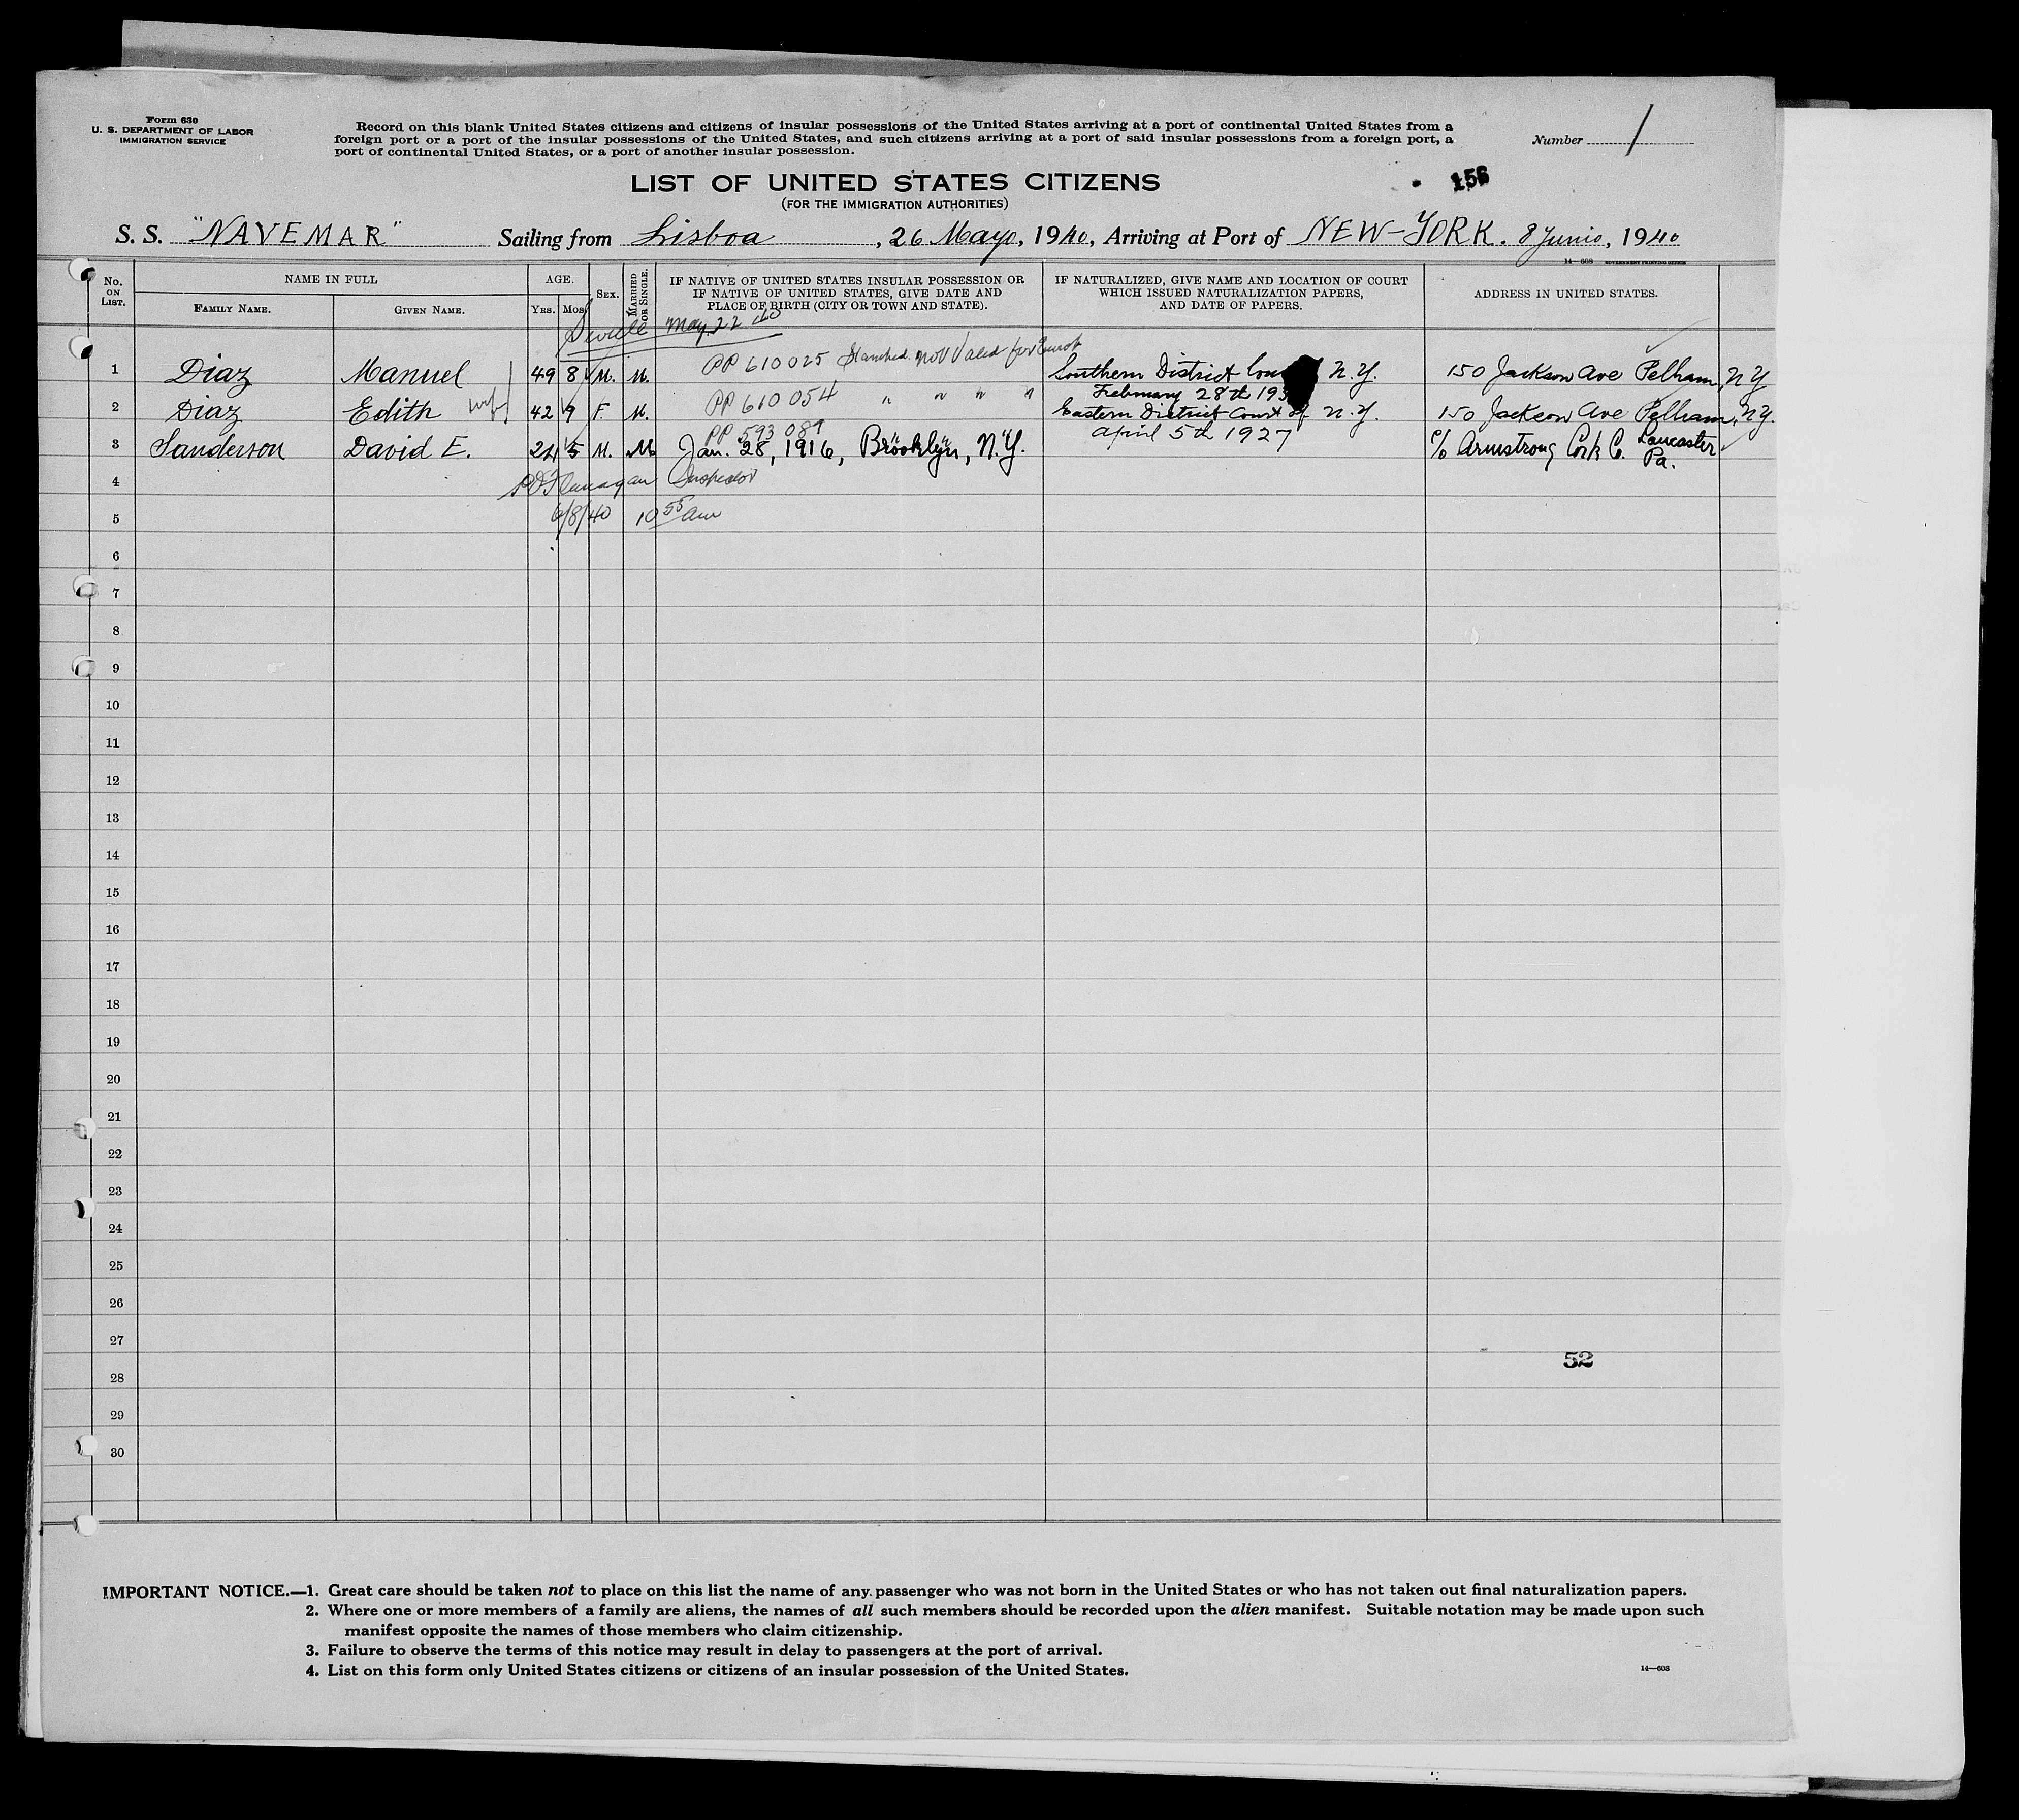 Form 630
U. S. DEPARTMENT OF LABOR
IMMIGRATION SERVICE
Record on this blank United States citizens and citizens of insular possessions of the United States arriving at a port of continental United States from a
foreign port or a port of the insular possessions of the United States, and such citizens arriving at a port of said insular possessions from a foreign port, a
port of continental United States, or a port of another insular possession.
Number 1
LIST OF UNITED STATES CITIZENS
(FOR THE IMMIGRATION AUTHORITIES)
156
S. S. "NAVEMAR" Sailing from Lisboa, 26 Mayo, 1940, Arriving at Port of NEW-YORK. 8 Junio, 1940
14—608 GOVERNMENT PRINTING OFFICE
No. ON LIST. NAME IN FULL AGE. SEX. MARRIED OR SINGLE. IF NATIVE OF UNITED STATES INSULAR POSSESSION OR IF NATIVE OF UNITED STATES, GIVE DATE AND PLACE OF BIRTH (CITY OR TOWN AND STATE). IF NATURALIZED, GIVE NAME AND LOCATION OF COURT WHICH ISSUED NATURALIZATION PAPERS, AND DATE OF PAPERS. ADDRESS IN UNITED STATES.
FAMILY NAME. GIVEN NAME. YRS. MOS.
Seville May 22
PP 610025 Stamped not Valid for
1 Diaz Manuel 49 8 M. M. Southern District N.Y. 150 Jackson Ave Pelham, N Y
February 28th
PP 610054 " " " "
2 Diaz Edith wife 42 9 F. M. Eastern District Court of N.Y. 150 Jackson Ave Pelham, N.Y.
April 5th 1927
PP 593 089
3 Sanderson David E. 24 5 M. M Jan. 28, 1916, Brooklyn, N.Y. c/o Armstrong Cork C. Lancaster Pa.
4 Flanagan Inspector
5 6/8/40 10 55 am
6
7
8
9
10
11
12
13
14
15
16
17
18
19
20
21
22
23
24
25
26
27
52
28
29
30
IMPORTANT NOTICE.—1. Great care should be taken not to place on this list the name of any passenger who was not born in the United States or who has not taken out final naturalization papers.
2. Where one or more members of a family are aliens, the names of all such members should be recorded upon the alien manifest. Suitable notation may be made upon such
manifest opposite the names of those members who claim citizenship.
3. Failure to observe the terms of this notice may result in delay to passengers at the port of arrival.
4. List on this form only United States citizens or citizens of an insular possession of the United States.
14—608